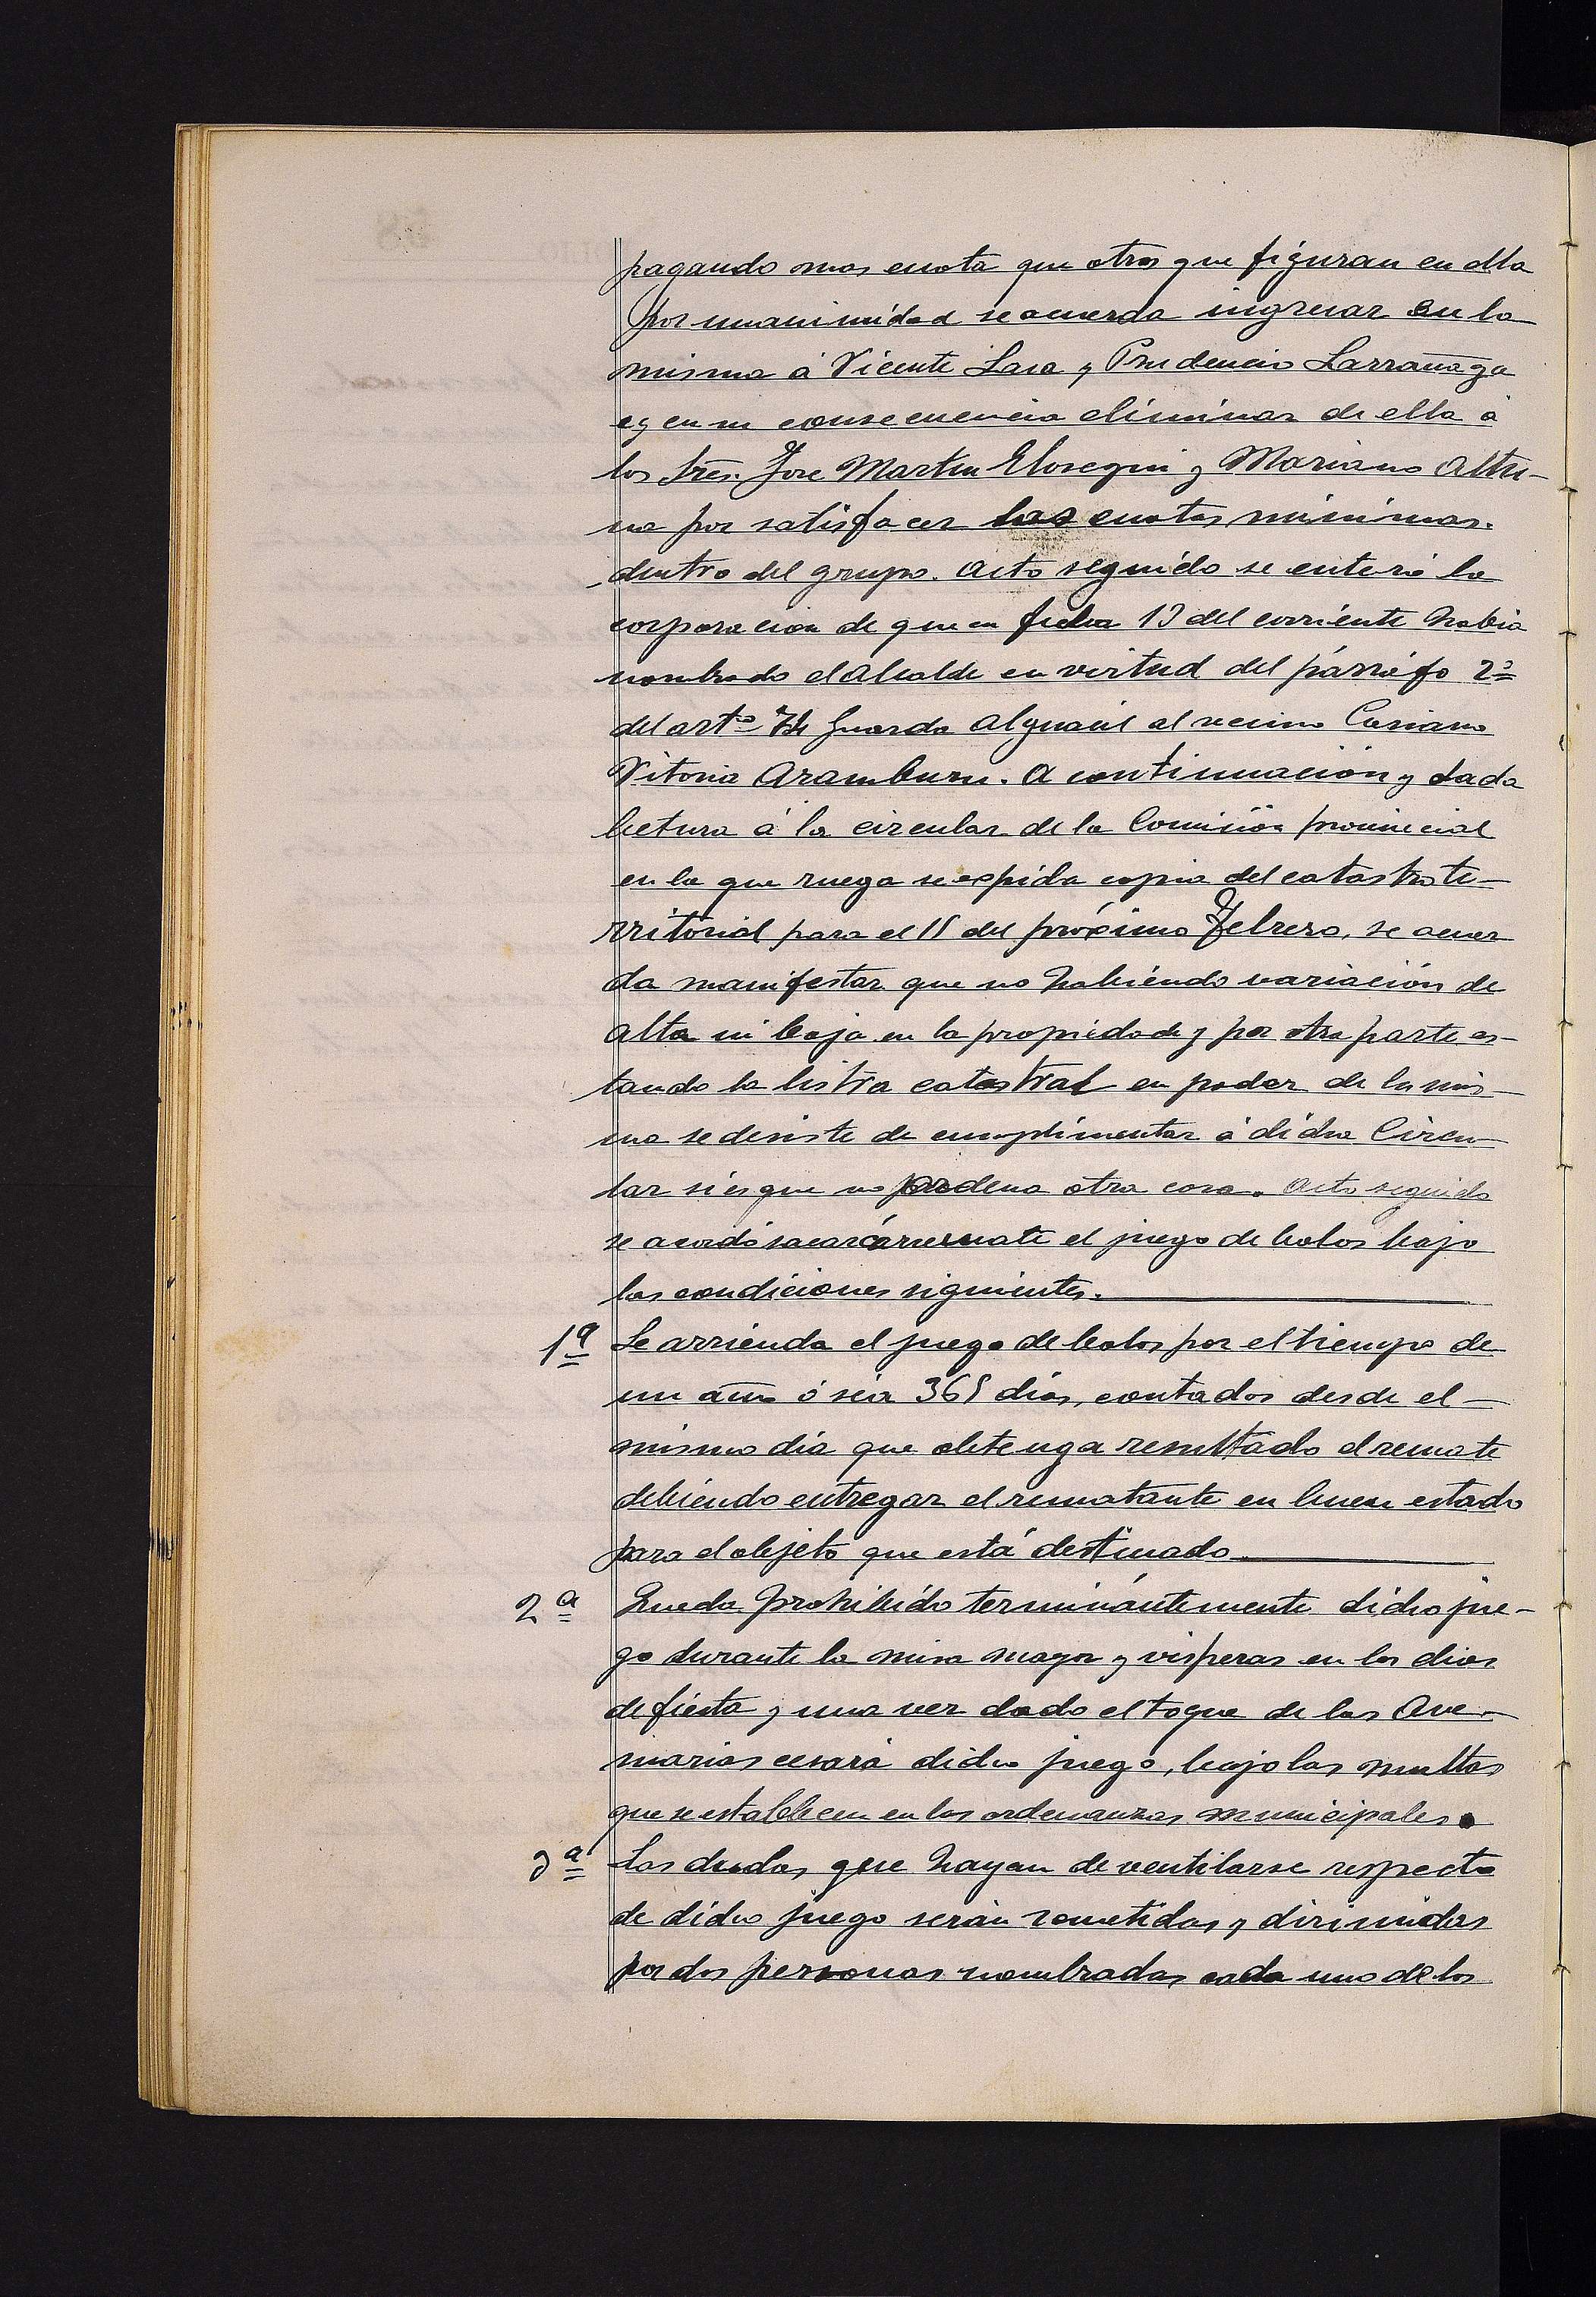 pagando mas cuota que otros que figuran en ella
por unanimidad se acuerda ingresar en la
misma á Vicente Lasa y Prudencio Larrañaga
y en su consecuencia eliminar de ella á
los Sres. Jose Martin Elosegui y Mariano Altu-
na por satisfacer las cuotas minimas.
dentro del grupo. Acto seguido se enteró la
corporacion de que en fecha 13 del corriente habia
nombrado el Alcalde en virtud del párrafo 2º
del artº 74 Guarda Alguacil al vecino Casiano
Vitoria Aramburu. A continuación y dada
lectura á la circular de la Comisión provincial
en la que ruega se expida copia del catastro te-
rritorial para el 15 del próximo Febrero, se acuer
da manifestar que no habiendo variación de
alta ni baja en la propiedad y por otra parte es-
tando la listra catastral en poder de la mis-
ma se desiste de cumplimentar á dicha Circu-
lar si es que no ordena otra cosa. Acto seguido
se acordó sacar á remate el juego de bolos bajo
las condiciones siguientes.
1ª Se arrienda el juego de bolos por el tiempo de
un año ó sea 365 dias, contados desde el
mismo dia que obtenga resultado el remate
debiendo entregar el rematante en buen estado
para el objeto que está destinado
2ª Queda prohibido terminántemente dicho jue-
go durante la misa mayor y visperas en los dias
de fiesta y una vez dado el toque de las Ave-
marias cesará dicho juego, bajo las multas
que se establecen en las ordenanzas municipales.
3ª Las dudas que hayan de ventilarse respecto
de dicho juego serán sometidas y dirimidas
por dos personas nombradas cada uno de los